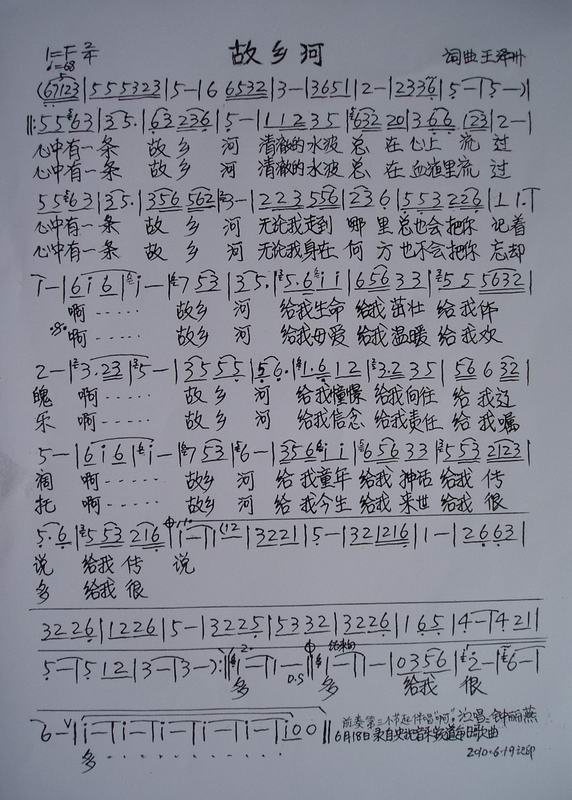 1=F 2/4
♩=68
故乡河
词曲 王泽州
(67123|555323|5-|6 6532|3-|3651|2-|2336|5-|5-)|
‖:55 63|35.|63 236|5-|1123 5|6632 20|3 66 123|2-|
心中有一条 故乡 河 清澈的水波 总 在 心上 流 过
心中有一条 故乡 河 清澈的水波 总 在 血道里流 过
55 63|35.|356 562|3-|223 556|236|553 226|11.|
心中有一条 故乡 河 无论我走到 哪 里 总也会把你 记着
心中有一条 故乡 河 无论我身在 何 方 也不会把你 忘却
i-|6i6|i-|7 53|35.|5.6 ii|656 33|55 5632|
啊······ 故乡 河 给我生命 给我 茁壮 给我体
啊······ 故乡 河 给我母爱 给我 温暖 给我欢
2-|3.23|5-|3555|5 6.|1.6 12|3.2 35|56 632|
魄 啊······ 故乡 河 给我憧憬 给我向往 给我辽
乐 啊······ 故乡 河 给我信念 给我责任 给我嘱
5-|6i6|i-|7 53|6-|356 ii|656 33|553 2123|
阔 啊······ 故乡 河 给我童年 给我神话 给我 传
托 啊······ 故乡 河 给我今生 给我来世 给我 很
5.6|553 216|i-|i(12|3221|5-|321216|1-|2663|
说 给我 传 说
多 给我 很
3226|1226|5-|3225|5332|3226|165|4-|421|
5-|512|3-|3-):‖i-|1-‖i-|i-|0356|2-|6-|
多 D.S 多 给我 很
6-|i-|i-|i-|i-|i-|i00‖
多········
前奏第三个节起伴唱"啊"。演唱:钟丽燕
6月18日录自央视音乐频道每日歌曲
2010.6.19记印